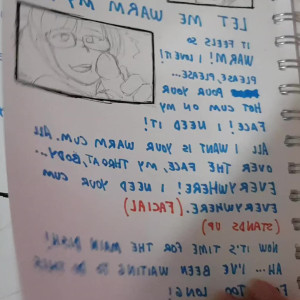 LET ME WARM MY
IT FEELS SO
WARM! I LOVE IT!
PLEASE, PLEASE...
POUR YOUR
HOT CUM ON MY
FACE! I NEED IT!
ALL I WANT IS YOUR WARM CUM. ALL
OVER THE FACE, MY THROAT, BODY...
EVERYWHERE! I NEED YOUR CUM
EVERYWHERE. (FACIAL)
(STANDS UP)
NOW IT'S TIME FOR THE MAIN DISH!
AH... I'VE BEEN WAITING TO BE
FOR TOO LONG!